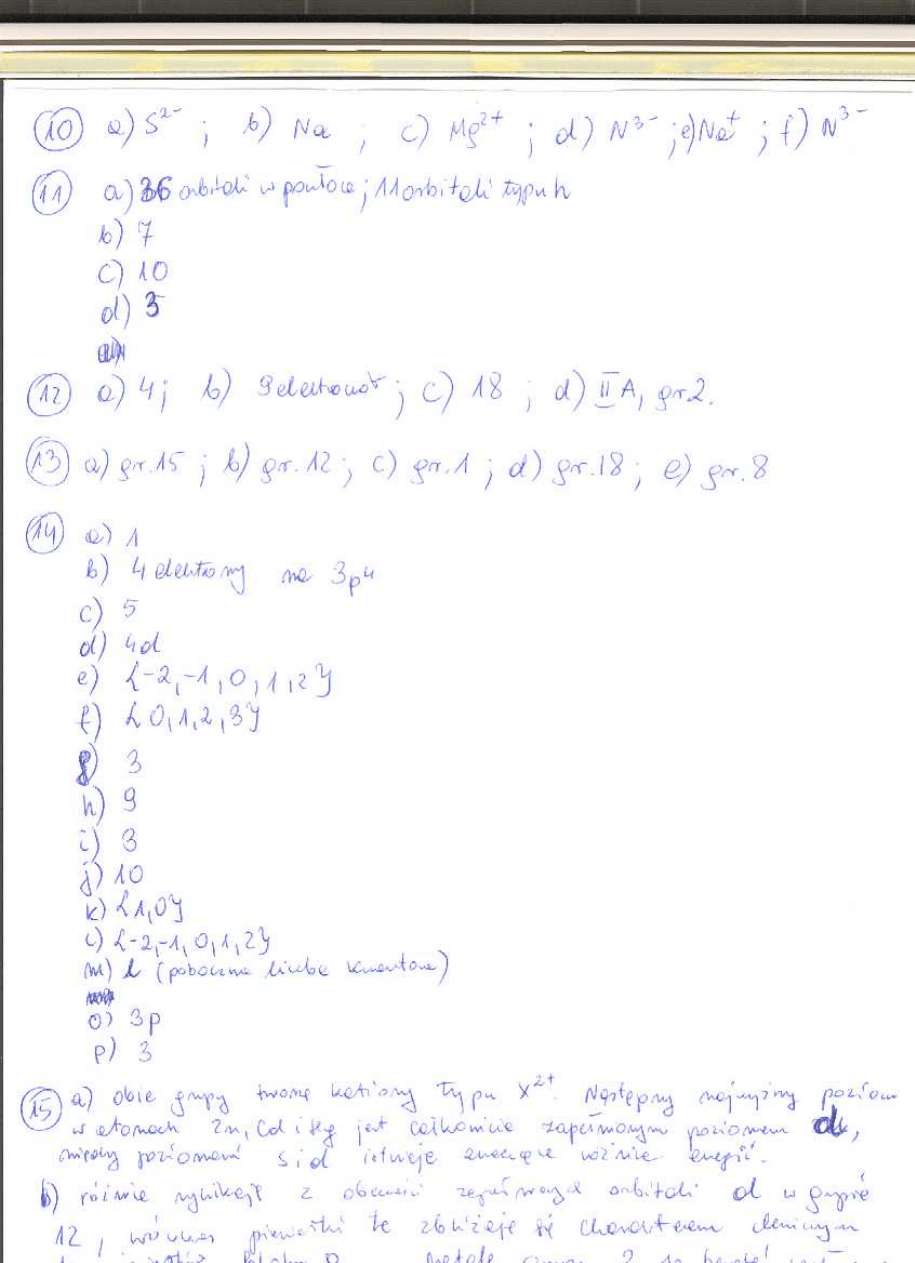 10 a) S²⁻ ; b) Na ; c) Mg²⁺ ; d) N³⁻ ; e) Na⁺ ; f) N³⁻
11 a) 36 orbitali w powłoce ; 11 orbitali typu h
b) 7
c) 10
d) 3
12 a) 4 ; b) 9 elektronów ; c) 18 ; d) II A, gr 2.
13 a) gr. 15 ; b) gr. 12 ; c) gr. 1 ; d) gr. 18 ; e) gr. 8
14 a) 1
b) 4 elektrony na 3p⁴
c) 5
d) 4d
e) {-2,-1,0,1,2}
f) {0,1,2,3}
g) 3
h) 9
i) 3
j) 10
k) {1,0}
l) {-2,-1,0,1,2}
m) l (poboczna liczba kwantowa)
o) 3p
p) 3
15 a) obie grupy tworzą kationy typu X²⁺. Następny najwyższy poziom
w atomach Zn, Cd i Hg jest całkowicie zapełnionym poziomem d,
między poziomami s i d istnieje znacząca różnica energii.
b) różnice wynikają z obecności orbitali d w grupie
12, pierwiastki te zbliżają się charakterem chemicznym
metale 2 są bardziej